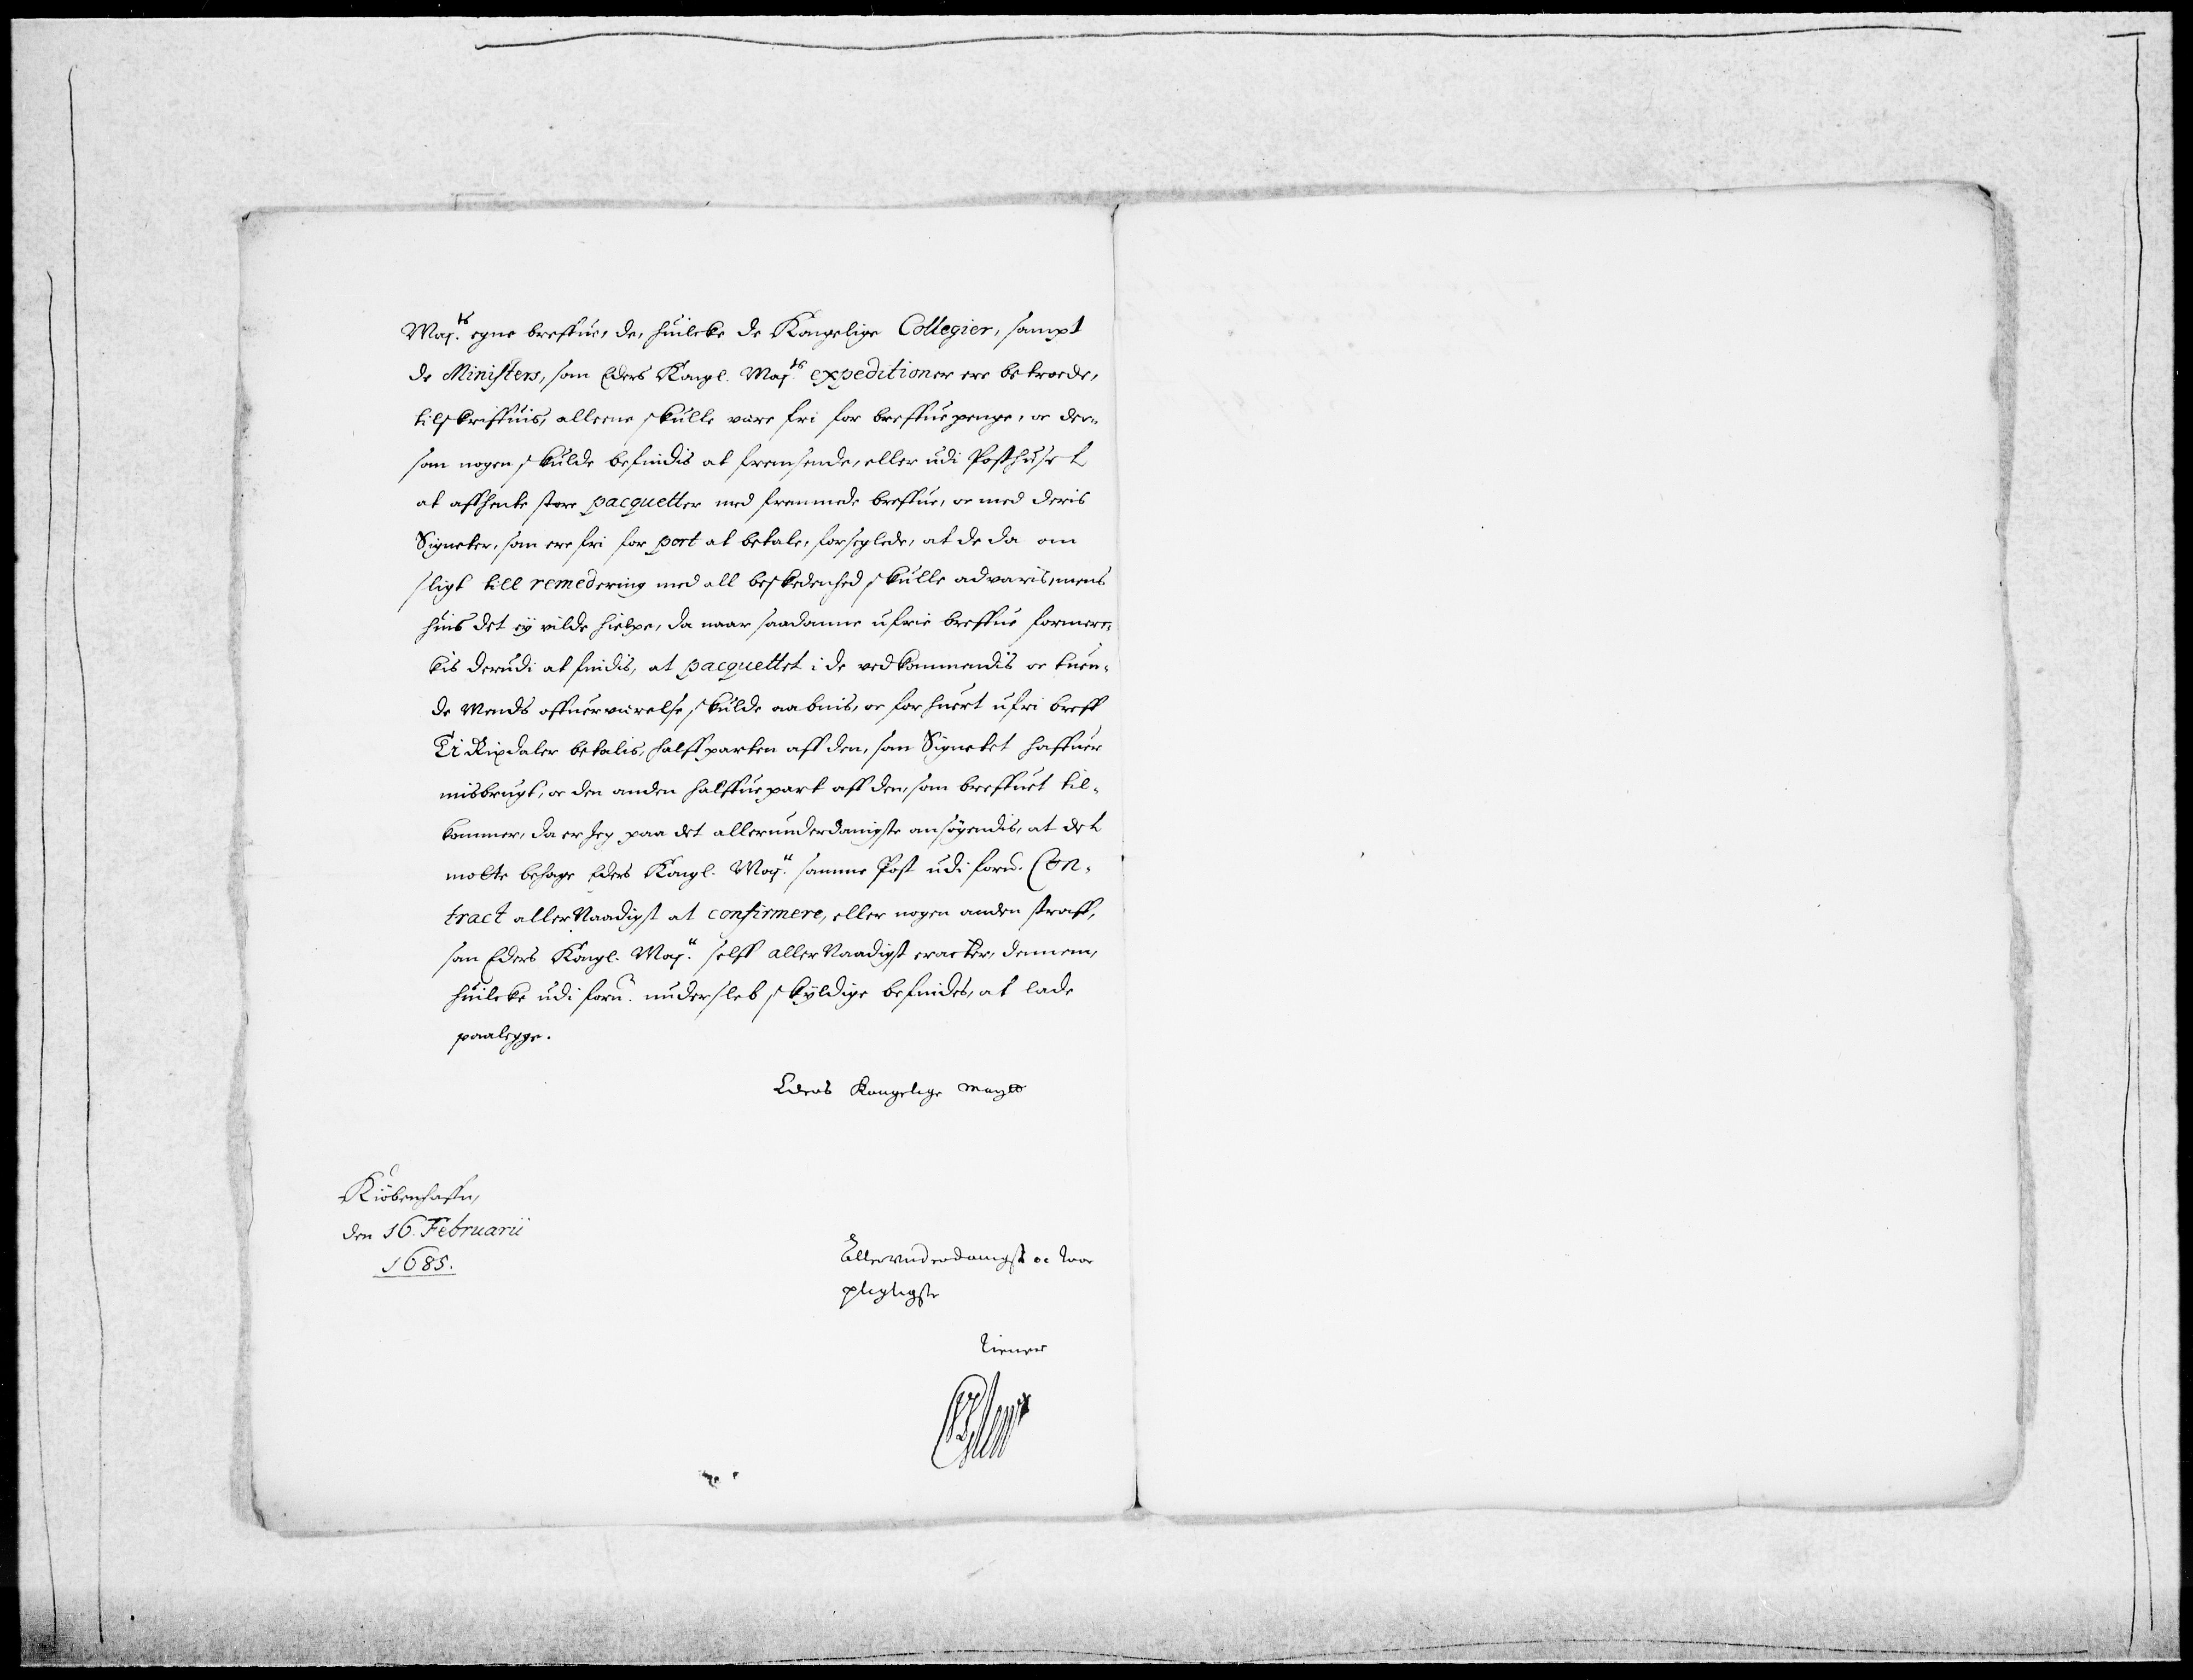 Maj.ts egne breffue, de, huilcke de Kongelige Collegier, sampt
de Ministers, som Eders Kongl. Maj.ts expeditioner ere betroede,
tilskriffuis, alleene skulle være fri for breffuepenge, oc der-
som nogen skulde befindis at fremsende, eller udi Posthuset
at affhente store pacquetter med fremmede breffue, oc med deris
Signeter, som ere fri for port at betale, forseglede, at de da om
sligt till remedering med all beskedenhed skulle advaris, mens
huis det ey vilde hielpe, da naar saadanne ufrie breffue formerc-
kis derudi at findis, at pacquettet i de vedkommendis oc tuen-
de Mends offuerværelse skulde aabnis, oc for huert ufri breff
Ti Rixdaler betalis, halffparten aff den, som Signetet haffuer
misbrugt, oc den anden halffuepart aff den, som breffuet til-
kommer, da er Jeg paa det allerunderdanigste ansøgendis, at det
motte behage Eders Kongl. Maj.tt samme Post udi forn. Con-
tract aller Naadigst at confirmere, eller nogen anden straff,
som Eders Kongl. Maj.tt selff aller Naadigst eracter, dennem,
huilcke udi forn. undersleb skyldige befindes, at lade
paalegge.
Eders Kongelige Mayts
Kiöbenhaffn,
den 16. Februarii
1685.
Allerunderdanigst oc troe
pligtigste
tienner